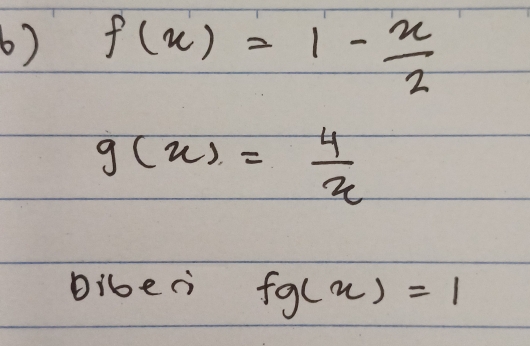 b) f(x) = 1 - x/2
g(x) = 4/x
Diberi fg(x) = 1